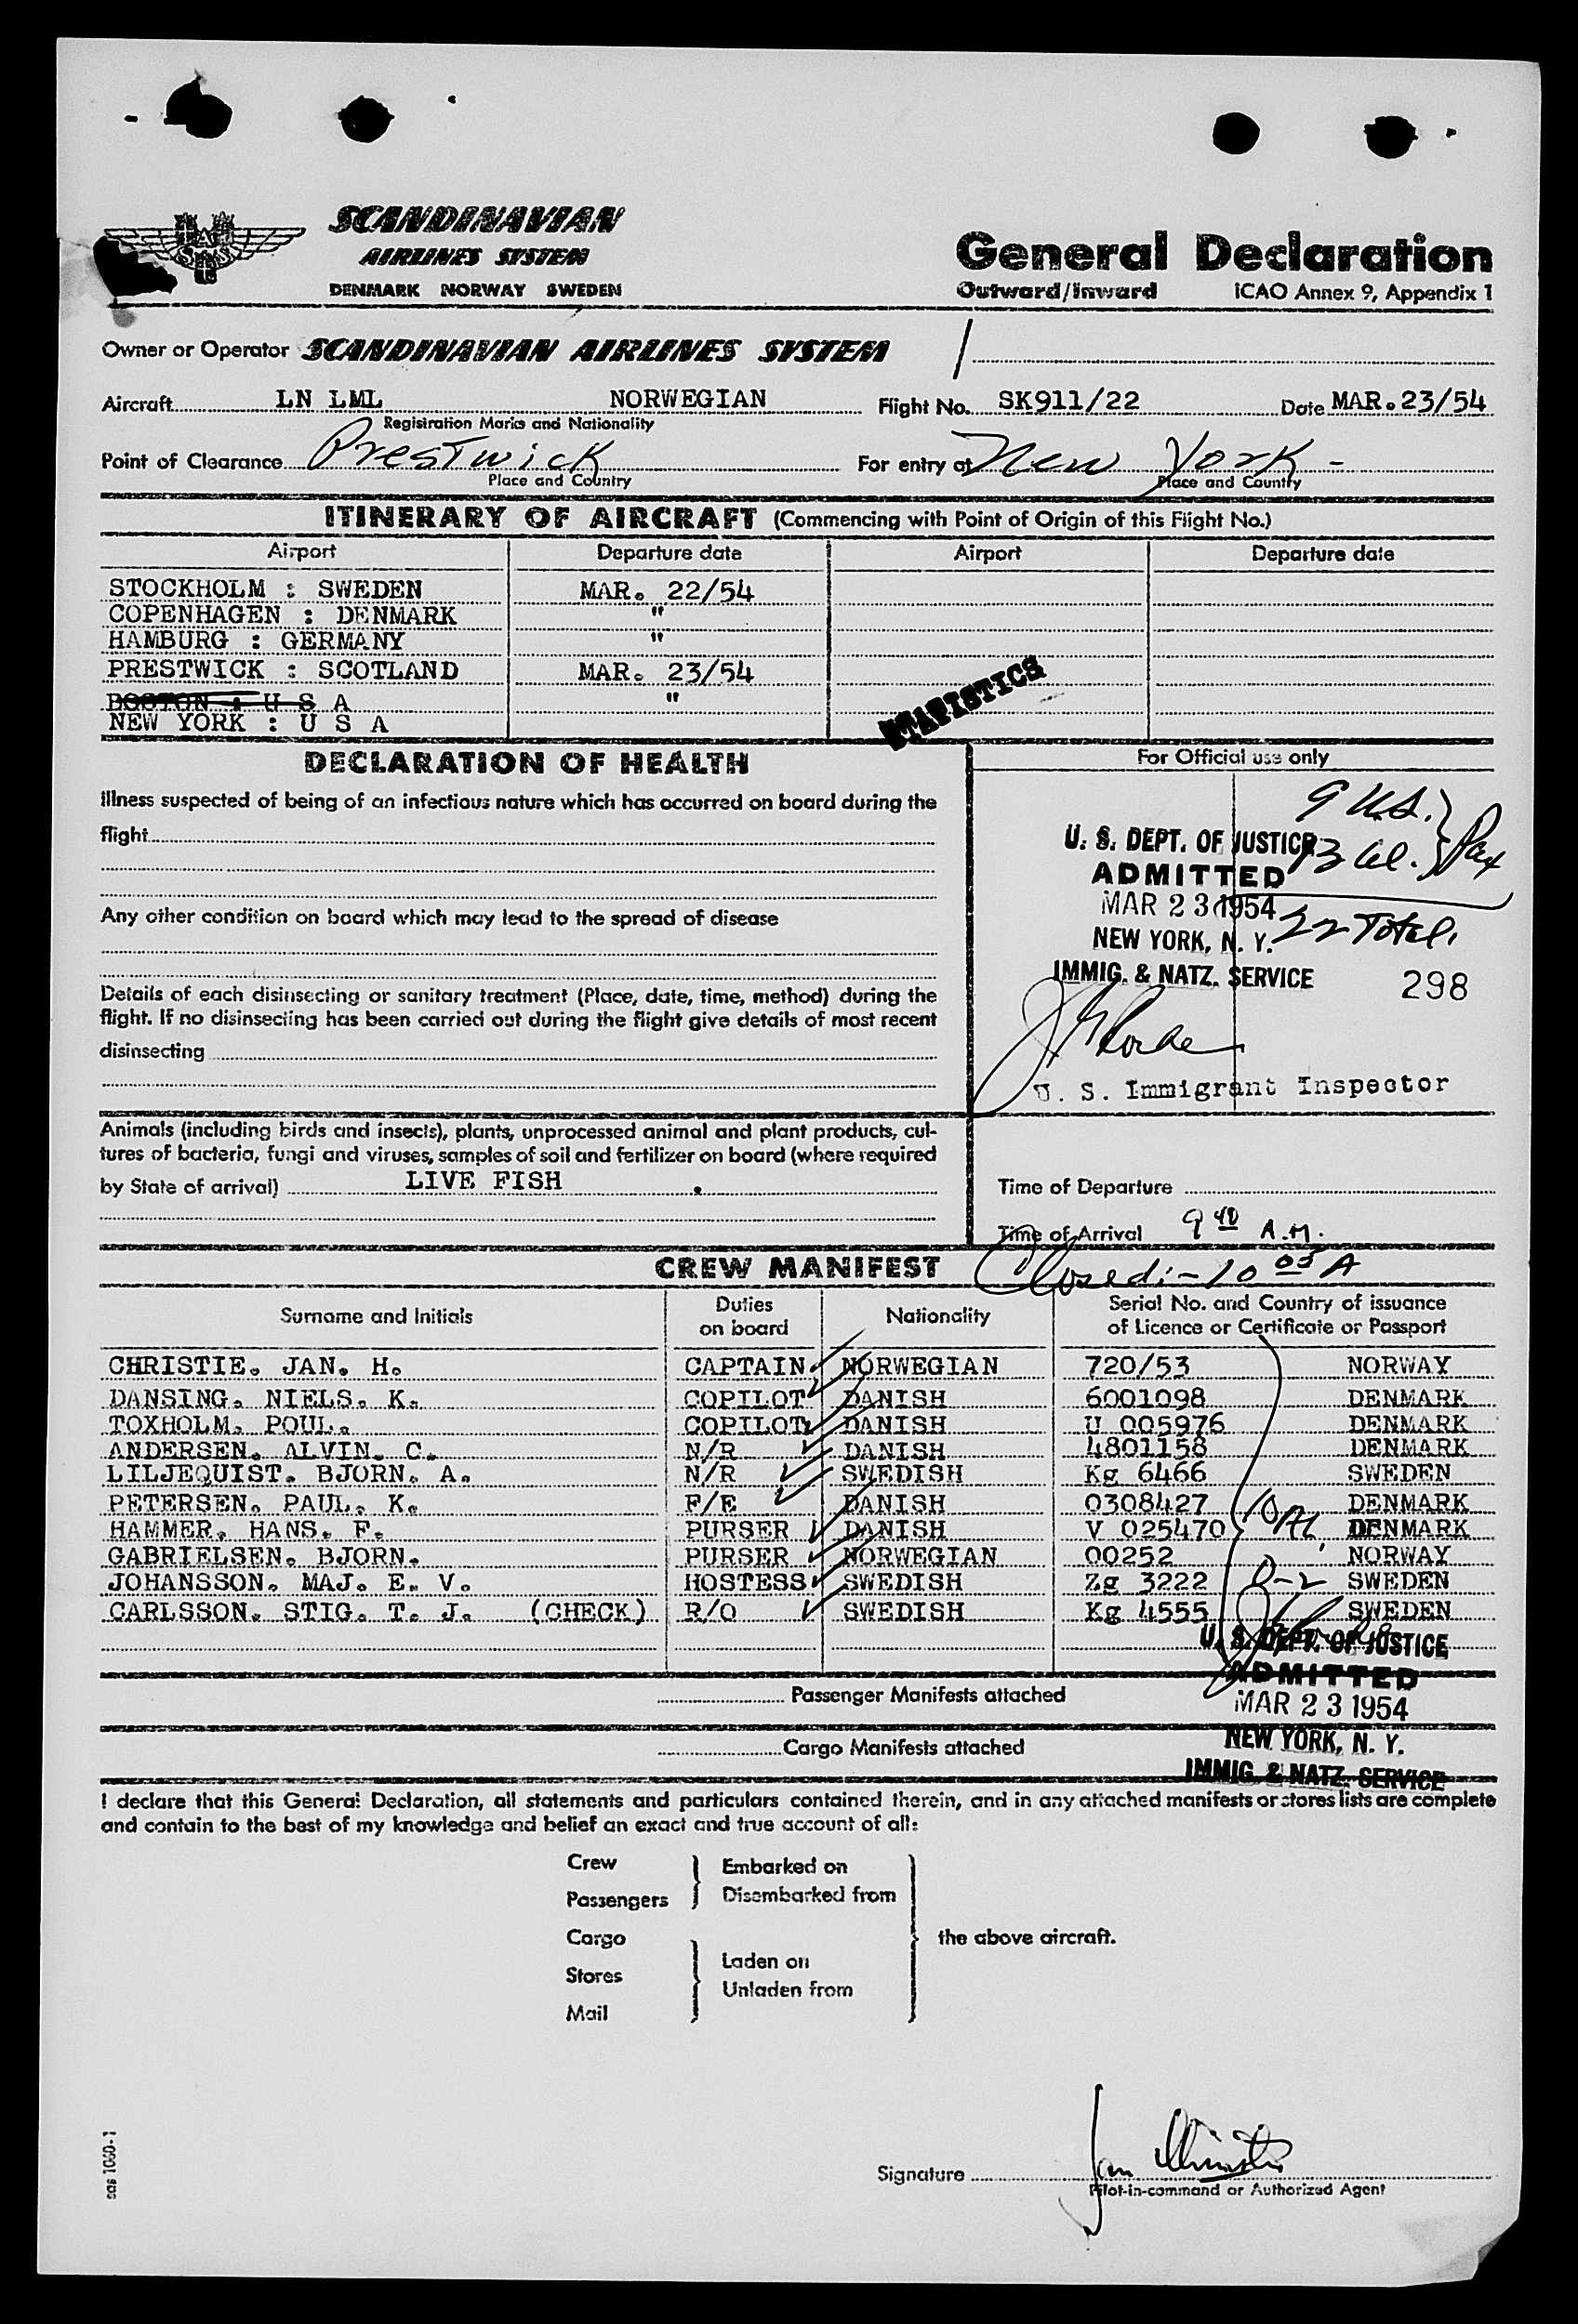 SCANDINAVIAN
AIRLINES SYSTEM
DENMARK NORWAY SWEDEN
General Declaration
Outward/Inward ICAO Annex 9, Appendix 1
Owner or Operator SCANDINAVIAN AIRLINES SYSTEM
Aircraft LN LML NORWEGIAN Flight No. SK911/22 Date MAR. 23/54
Registration Marks and Nationality
Point of Clearance Prestwick For entry at New York -
Place and Country Place and Country
ITINERARY OF AIRCRAFT (Commencing with Point of Origin of this Flight No.)
Airport Departure date Airport Departure date
STOCKHOLM : SWEDEN MAR. 22/54
COPENHAGEN : DENMARK "
HAMBURG : GERMANY "
PRESTWICK : SCOTLAND MAR. 23/54
BOSTON : U S A "
NEW YORK : U S A
STATISTICS
DECLARATION OF HEALTH
For Official use only
Illness suspected of being of an infectious nature which has occurred on board during the
flight
Any other condition on board which may lead to the spread of disease
Details of each disinsecting or sanitary treatment (Place, date, time, method) during the
flight. If no disinsecting has been carried out during the flight give details of most recent
disinsecting
9 U.S.
U. S. DEPT. OF JUSTICE 13 al. Pax
ADMITTED
MAR 23 1954
NEW YORK, N. Y. 22 Total.
IMMIG. & NATZ. SERVICE 298
U. S. Immigrant Inspector
Animals (including birds and insects), plants, unprocessed animal and plant products, cul-
tures of bacteria, fungi and viruses, samples of soil and fertilizer on board (where required
by State of arrival) LIVE FISH .
Time of Departure
Time of Arrival 9 40 A.M.
CREW MANIFEST
Closed:- 10 05 A
Surname and Initials Duties on board Nationality Serial No. and Country of issuance of Licence or Certificate or Passport
CHRISTIE. JAN. H. CAPTAIN NORWEGIAN 720/53 NORWAY
DANSING. NIELS. K. COPILOT DANISH 6001098 DENMARK
TOXHOLM. POUL. COPILOT DANISH U 005976 DENMARK
ANDERSEN. ALVIN. C. N/R DANISH 4801158 DENMARK
LILJEQUIST. BJORN. A. N/R SWEDISH Kg 6466 SWEDEN
PETERSEN. PAUL. K. F/E DANISH 0308427 DENMARK
HAMMER. HANS. F. PURSER DANISH V 025470 DENMARK
GABRIELSEN. BJORN. PURSER NORWEGIAN 00252 NORWAY
JOHANSSON. MAJ. E. V. HOSTESS SWEDISH Zg 3222 SWEDEN
CARLSSON. STIG. T. J. (CHECK) R/O SWEDISH Kg 4555 SWEDEN
10 Al.
D-2
U. S. DEPT. OF JUSTICE
ADMITTED
MAR 23 1954
NEW YORK, N. Y.
IMMIG. & NATZ. SERVICE
Passenger Manifests attached
Cargo Manifests attached
I declare that this General Declaration, all statements and particulars contained therein, and in any attached manifests or stores lists are complete
and contain to the best of my knowledge and belief an exact and true account of all:
Crew Embarked on
Passengers Disembarked from
Cargo the above aircraft.
Laden on
Stores
Unladen from
Mail
Signature Jan Christie
Pilot-in-command or Authorized Agent
sas 1060-1